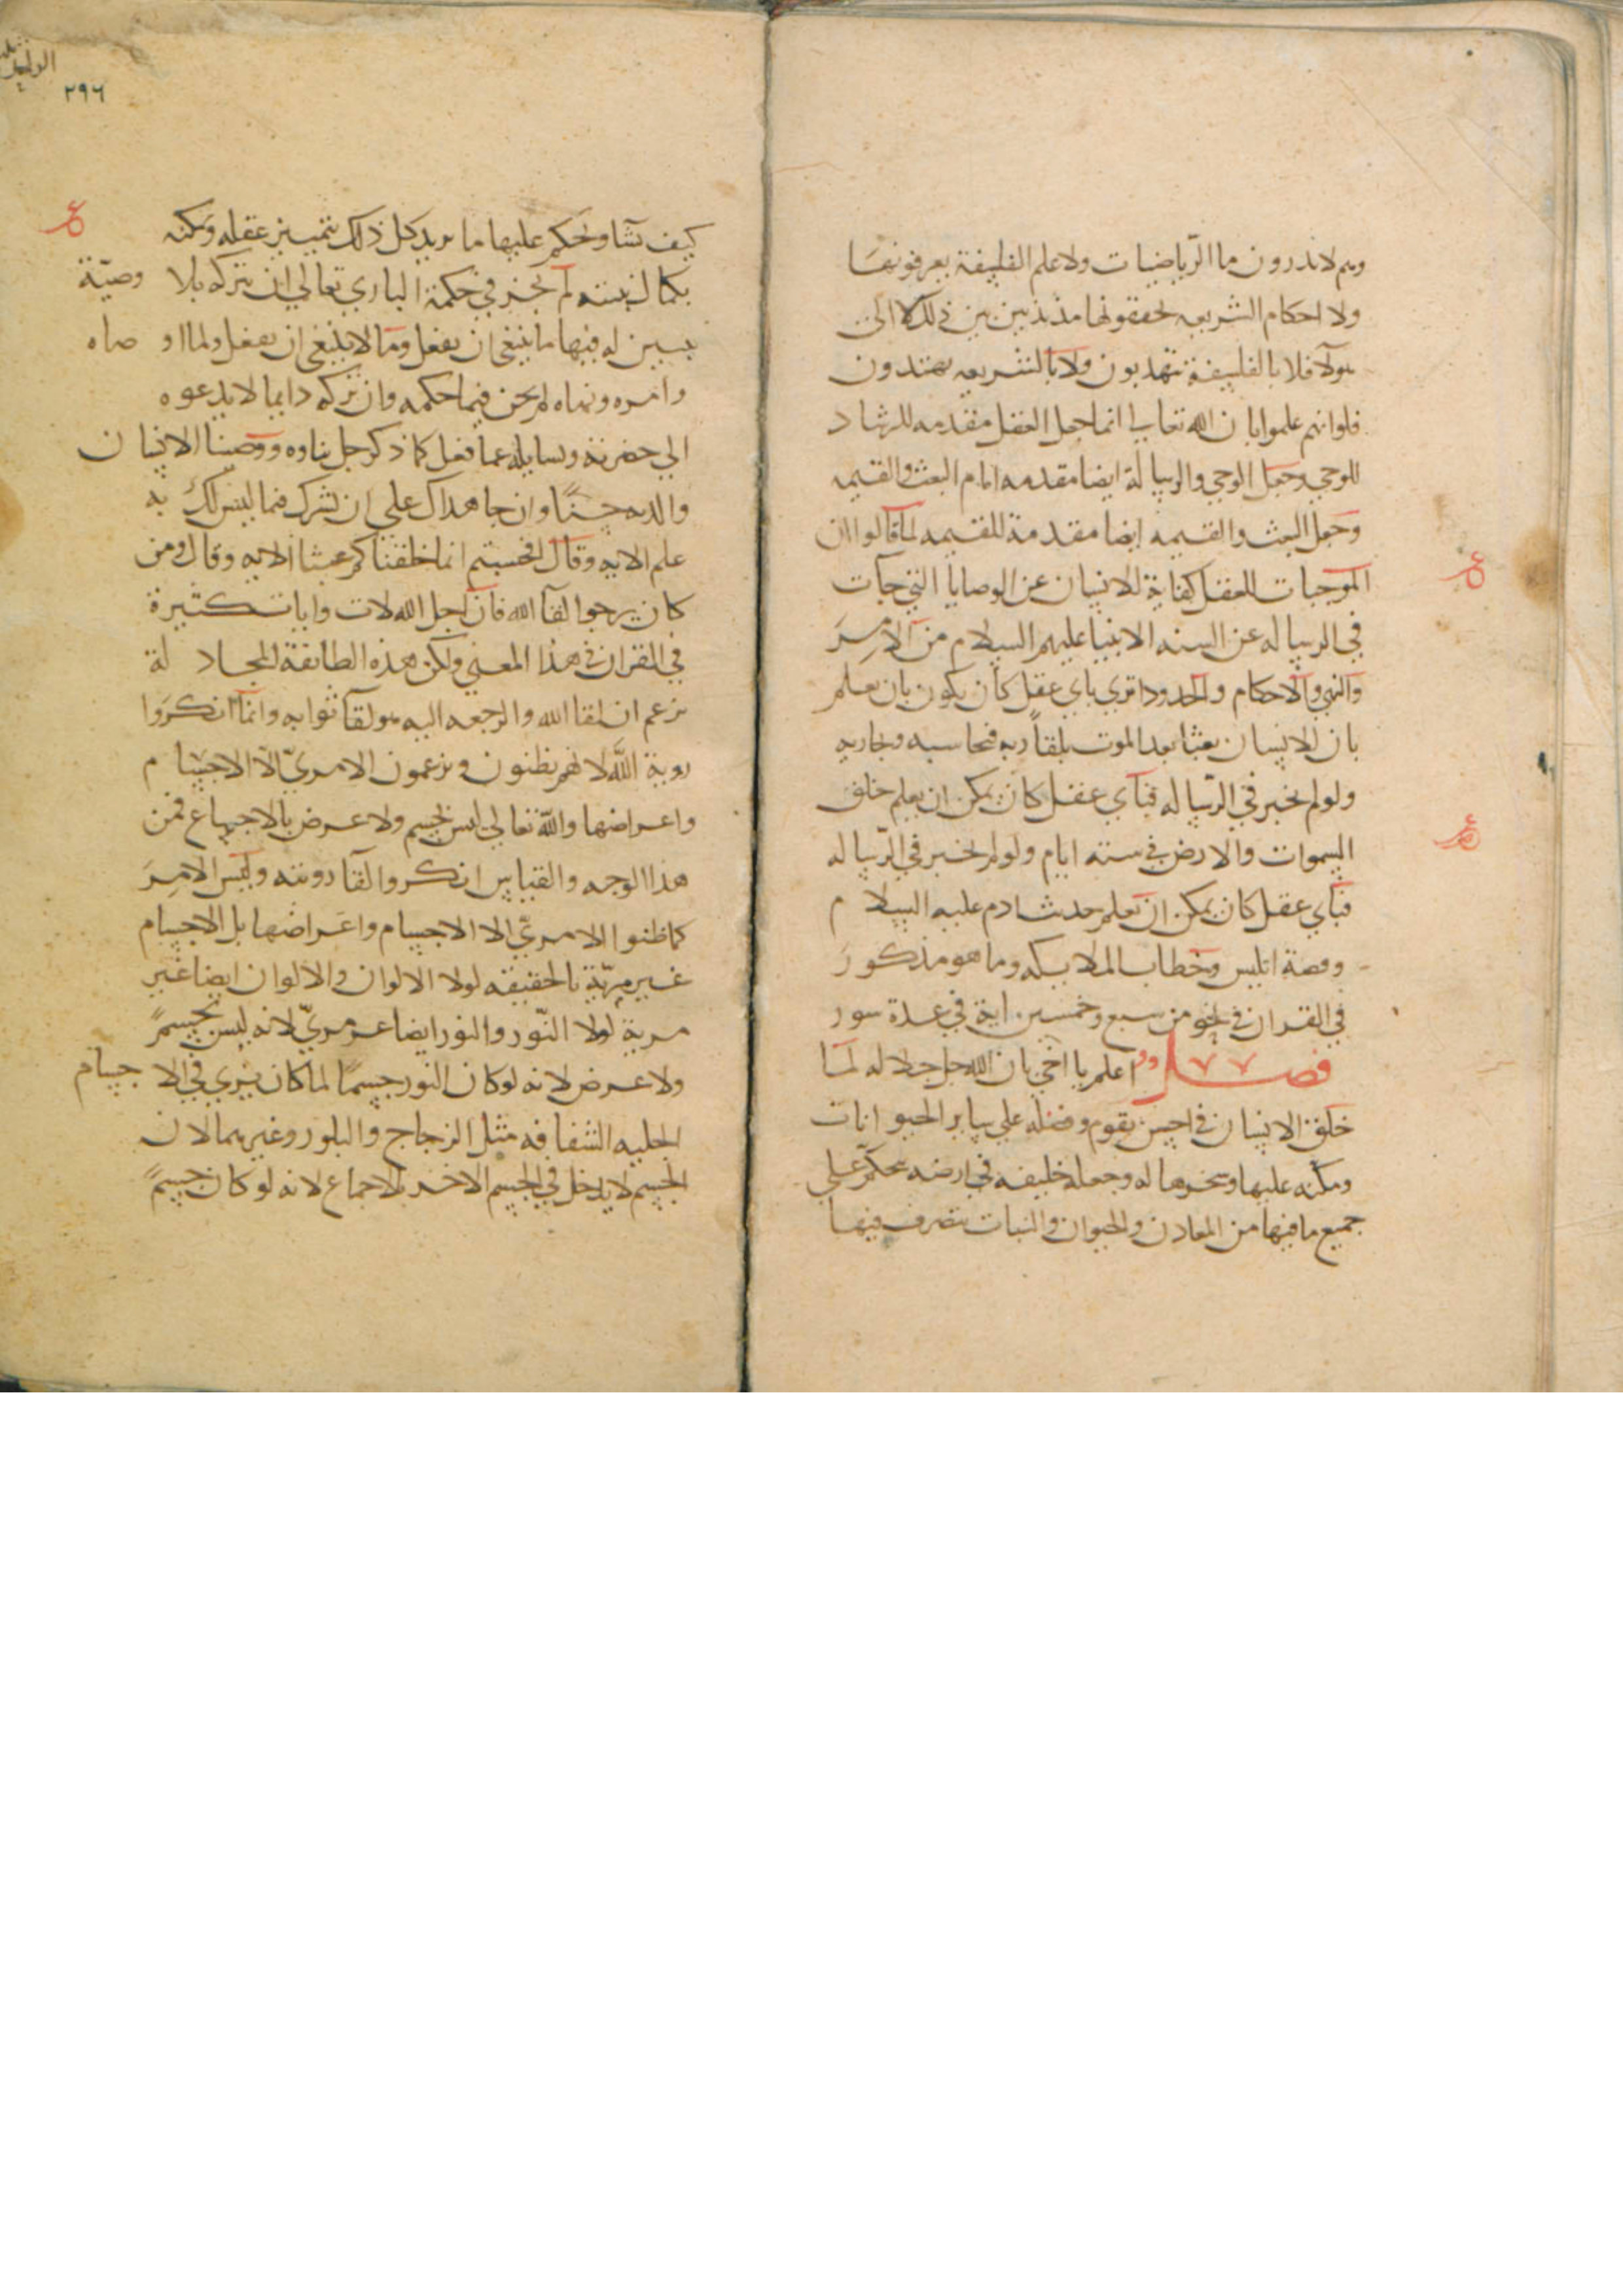 وهم لا يدرون ما الرّياضيات ولا علم الفلسفة يعرفونها
ولا احكام الشريعه يحققونها مذبذبين بين ذلك لا الى
هولآ فلا بالفلسفة يتهذبون ولا بالشريعه يهتدون
فلوانهم علموا بان الله تعالى انما جعل العقل مقدمه للرشاد
للوحي وجعل الوحي والرسالة ايضا مقدمه امام البعث والقيمه
وجعل البعث والقيمه ايضا مقدمة للقيمه لما قالوا ان
الموجبات للعقل كفاية للانسان عن الوصايا التي جآت
في الرساله عن السنه الانبيا عليهم السلام من الامر
والنهي والاحكام والحدود اترى باي عقل كان يكون بان يعلم
بان للانسان بعثا بعد الموت بلقاً ربه فيحاسبه ويجازيه
ولو لم يخبر في الرّساله فبآي عقل كان يمكن ان يعلم خلق
السموات والارض في سته ايام ولو لم يخبر في الرّساله
فبآي عقل كان يمكن ان يعلم حديث ادم عليه السلام
وقصة ابليس وخطاب الملايكه وما هو مذكور
في القران في نحو من سبع وخمسين اية في عدة سور
فصل اعلم يا اخي بان الله جل جلاله لما
خلق الانسان في احسن تقوم وفضله على ساير الحيوانات
ومكنه عليها وسخرها له وجعله خليفه في ارضه يحكم على
جميع ما فيها من المعادن والحيوان والنبات يتصرف فيها
٢٩٦
كيف يشا ويحكم عليها ما يريد كل ذلك بتمييز عقله ومكنه
بكمال بنيته لم يجز في حكمة الباري تعالى ان يتركه بلا وصيّة
يبين له فيها ما ينبغي ان يفعل وما لا ينبغي ان يفعل ولما اوصاه
وامره ونهاه لم يجز فيما حكمه وان يتركه دايما لا يدعوه
الى حضرته ويسايله عما فعل كما ذكر جل ثناوه ووصينا الانسان
والديه حسناً وان جاهداك على ان تشرك فيما ليس لك به
علم الايه وقال افحسبتم انما خلقناكم عبثا الايه وقال ومن
كان يرجوا لقآ الله فان اجل الله لات وايات كثيرة
في القران في هذا المعنى ولكن هذه الطائفة المجادلة
تزعم ان لقا الله والرجعه اليه هو لقآ ثوابه وانما انكروا
روية الله لانهم يظنون ويزعمون الا مرئيّ الّا الاجسام
واعراضها والله تعالى ليس بجسم ولا عرض بالاجماع فمن
هذا الوجه والقياس انكروا لقآ رويته وليس الامر
كما ظنوا الا مرئي الا الاجسام واعراضها بل الاجسام
غير مرئيّة بالحقيقه لولا الالوان والالوان ايضا غير
مرية لولا النّور والنور ايضا غير مرئيّ لانه ليس بجسمً
ولا عرض لانه لو كان النور جسمًا لما كان يسري في الاجسام
الجليه الشفافه مثل الزجاج والبلور وغيرهما لان
الجسم لا يدخل في الجسم الاخر بالاجماع لانه لو كان جسمً